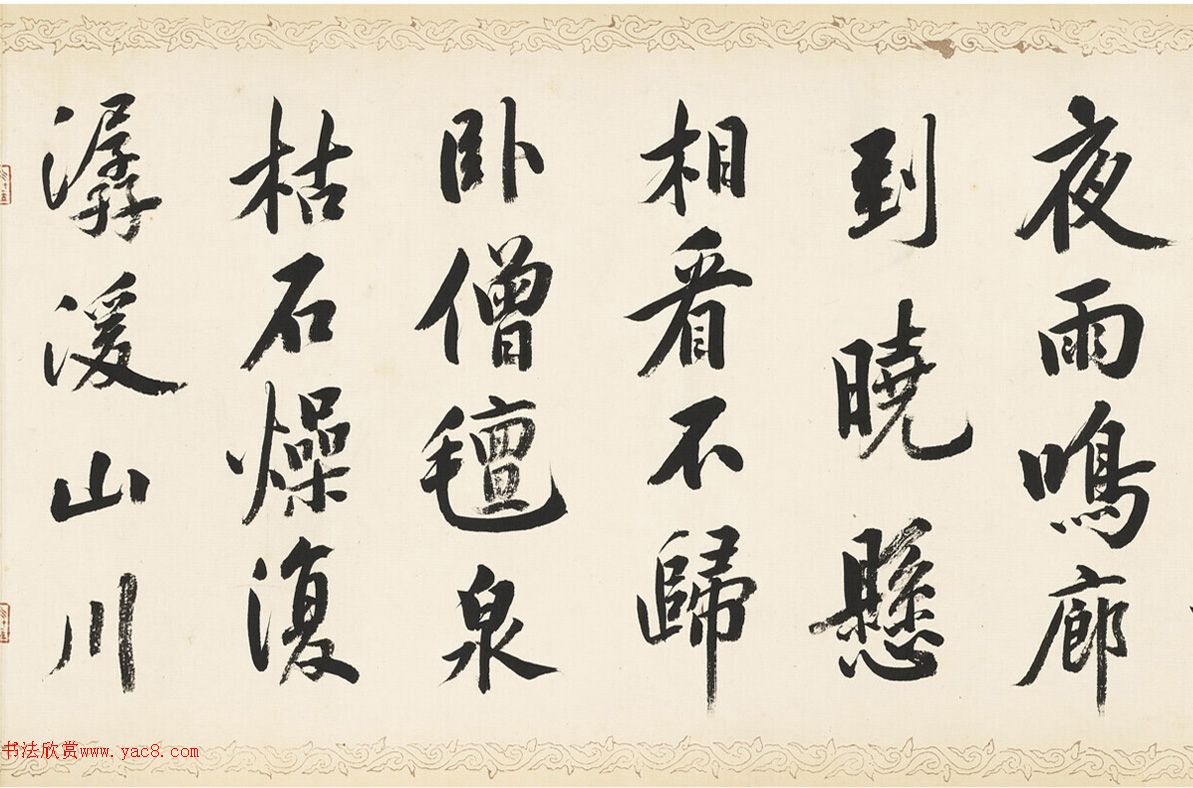 夜雨鳴廊
到曉懸
相看不歸
卧僧氈泉
枯石燥復
潺湲山川
书法欣赏www.yac8.com